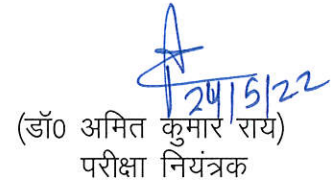 24/5/22
(डॉ0 अमित कुमार राय)
परीक्षा नियंत्रक